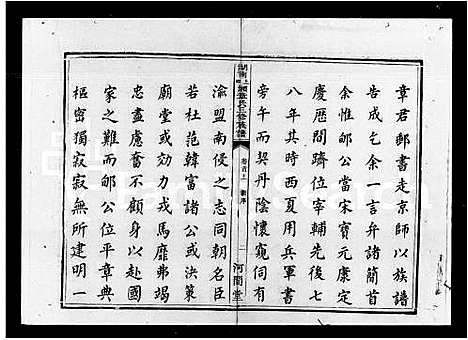 章君郵書走京師以族譜
告成乞余一言弁諸簡首
余惟郇公當宋寶元康定
慶歷間躋位宰輔先後七
八年其時西夏用兵軍書
旁午而契丹陰懷窺伺有
湖南上湘章氏三修族譜
卷首上
序
二
河間堂
渝盟南侵之志同朝名臣
若杜范韓富諸公或決策
廟堂或効力戎馬靡弗竭
忠盡慮奮不顧身以赴國
家之難而郇公平章典
樞密獨寂寂無所建明一